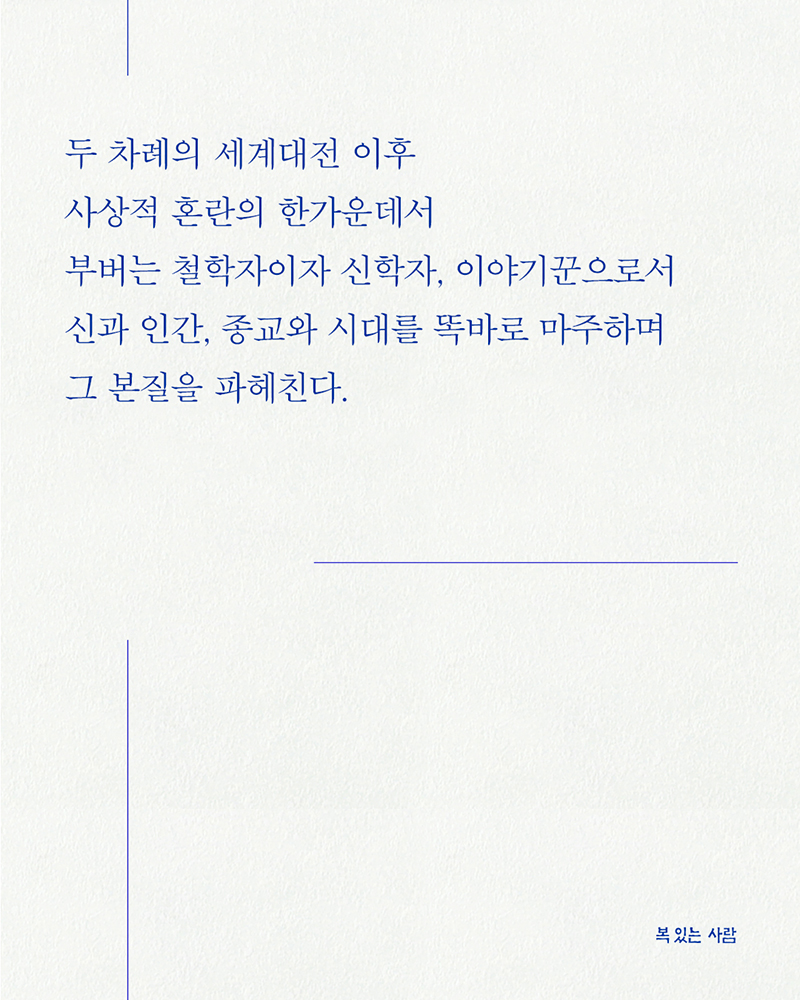 두 차례의 세계대전 이후
사상적 혼란의 한가운데서
부버는 철학자이자 신학자, 이야기꾼으로서
신과 인간, 종교와 시대를 똑바로 마주하며
그 본질을 파헤친다.
복 있는 사람